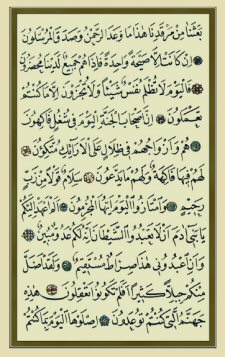 بَعَثَنَا مِنْ مَرْقَدِنَا هٰذَا مَا وَعَدَ الرَّحْمٰنُ وَصَدَقَ الْمُرْسَلُونَ
اِنْ كَانَتْ اِلَّا صَيْحَةً وَاحِدَةً فَاِذَا هُمْ جَمِيعٌ لَدَيْنَا مُحْضَرُونَ
فَالْيَوْمَ لَا تُظْلَمُ نَفْسٌ شَيْـًٔا وَلَا تُجْزَوْنَ اِلَّا مَا كُنْتُمْ
تَعْمَلُونَ اِنَّ اَصْحَابَ الْجَنَّةِ الْيَوْمَ فِى شُغُلٍ فَاكِهُونَ
هُمْ وَاَزْوَاجُهُمْ فِى ظِلَالٍ عَلَى الْاَرَائِكِ مُتَّكِؤُنَ
لَهُمْ فِيهَا فَاكِهَةٌ وَلَهُمْ مَا يَدَّعُونَ سَلَامٌ قَوْلًا مِنْ رَبٍّ
رَحِيمٍ وَامْتَازُوا الْيَوْمَ اَيُّهَا الْمُجْرِمُونَ اَلَمْ اَعْهَدْ اِلَيْكُمْ
يَا بَنِى اٰدَمَ اَنْ لَا تَعْبُدُوا الشَّيْطَانَ اِنَّهُ لَكُمْ عَدُوٌّ مُبِينٌ
وَاَنِ اعْبُدُونِى هٰذَا صِرَاطٌ مُسْتَقِيمٌ وَلَقَدْ اَضَلَّ
مِنْكُمْ جِبِلًّا كَثِيرًا اَفَلَمْ تَكُونُوا تَعْقِلُونَ هٰذِهِ
جَهَنَّمُ الَّتِى كُنْتُمْ تُوعَدُونَ اِصْلَوْهَا الْيَوْمَ بِمَا كُنْتُمْ